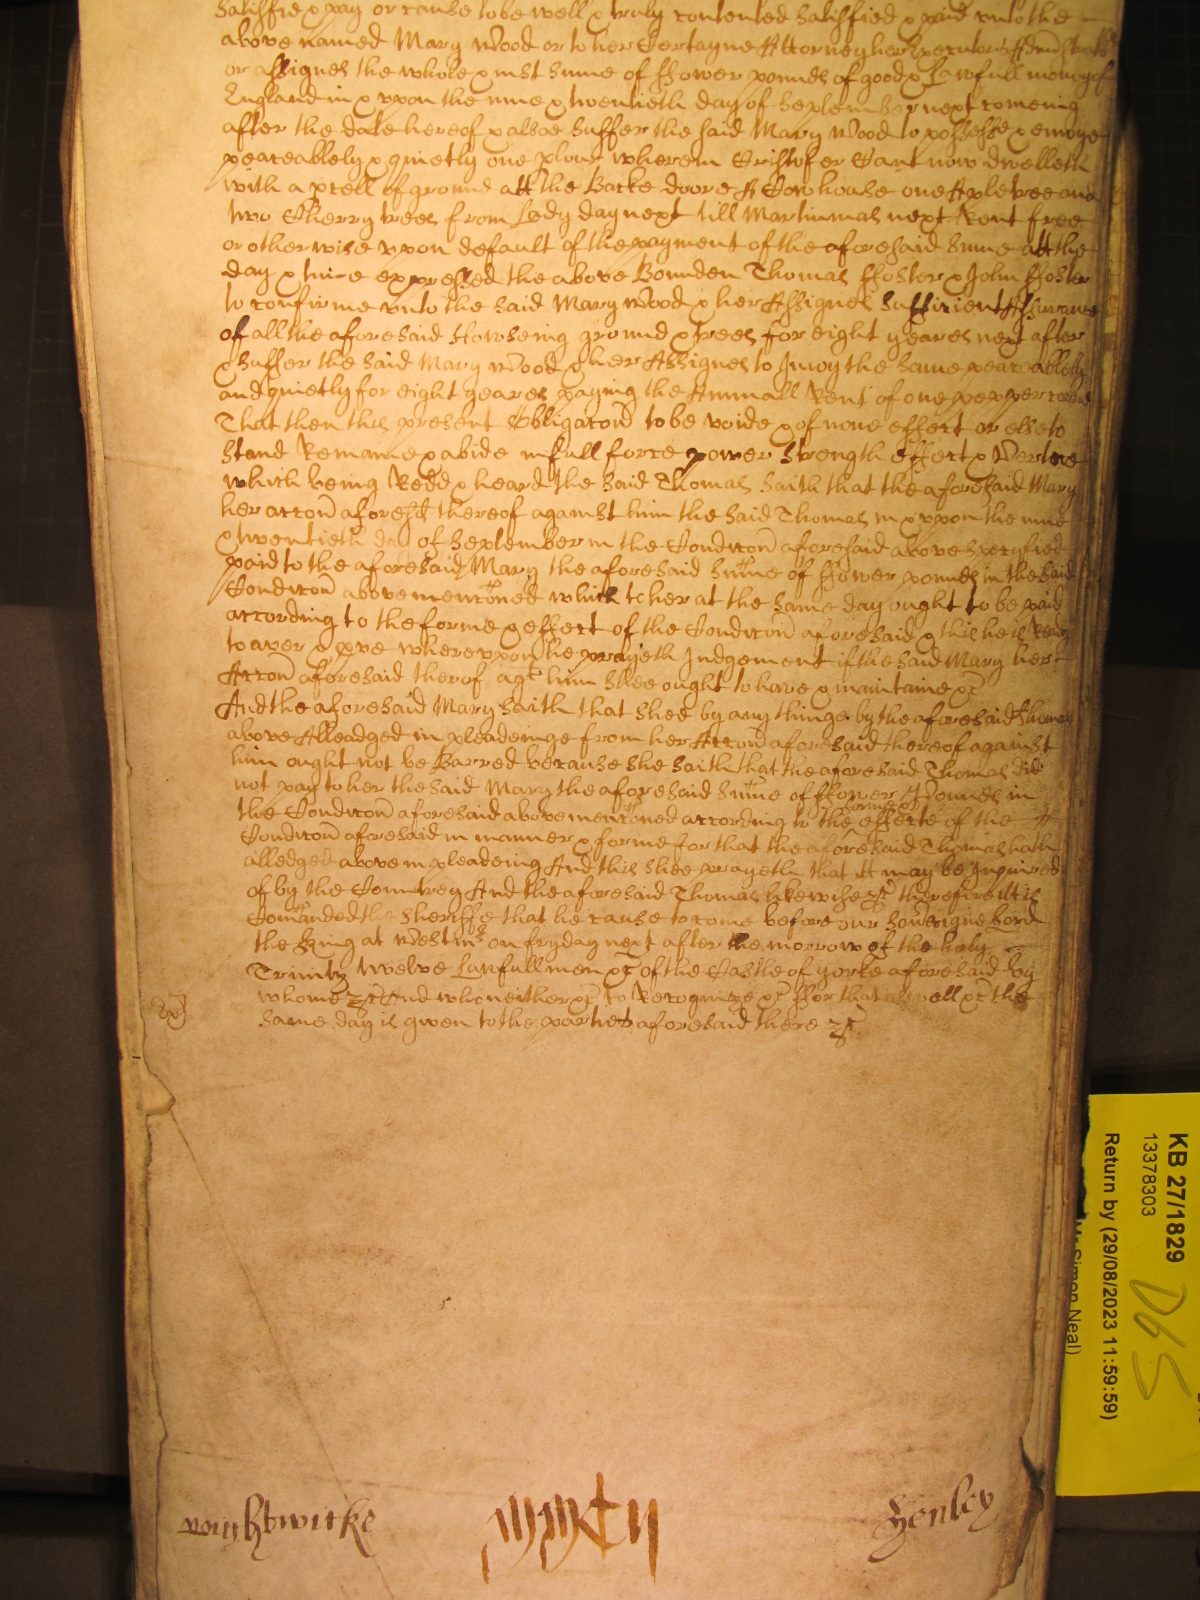 Satisfie & pay or cause to be well & truly contented Satisfied & paid unto the
above named Mary Wood or to her Certayne Attorney her Executors
or assignes the whole & just Sume of ffower pounds of good & Lawfull mony of
England in & upon the nine & twentieth day of September next comeing
after the date hereof & alsoe Suffer the said Mary Wood to possesse & enioye
peaceablely & quietly one wherein Cristofer Cant now dwelleth
with a pcell of ground att the Backe doore A Cowhouse one Apletree and
two Cherry trees from Lady day next till Martinmas next Rent free
or otherwise upon default of the payment of the aforesaid Sume att the
day & time expressed the above Bounden Thomas ffoster & John ffoster
to confirme unto the said Mary Wood & her Assignes Sufficient Assurance
of all the aforesaid Howseing ground & trees for eight yeares next after
& Suffer the said Mary Wood & her Assignes to Injoy the Same peaceablely
and quietly for eight yeares paying the Annuall Rent of one pepper corne
That then this present Obligacon to be voide & of none effect or else to
Stand Remaine & abide in full force power Strength effect & Vertue
which being Redd & heard the said Thomas Saith that the aforesaid Mary
her accon aforesd thereof against him the said Thomas in & upon the nine
& twentieth day of September in the Condicon aforesaid above specyfied
paid to the aforesaid Mary the aforesaid Sume of ffower pounds in the said
Condicon above mencioned which to her at the same day ought to be paid
according to the forme & effect of the Condicon aforesaid & this he is Ready
to aver & pve whereupon he prayeth Judgement if the said Mary her
Accon aforesaid therof agt him Shee ought to have & maintaine &c
And the aforesaid Mary Saith that Shee by any thinge by the aforesaid Thomas
above Alleadged in pleadeinge from her Accon aforesaid thereof against
him ought not be Barred because she saith that the aforesaid Thomas did
not pay to her the said Mary the aforesaid Sume of ffower Pounds in
the Condicon aforesaid above mencioned according to the forme & effecte of the
Condicon aforesaid in manner & forme for that the aforesaid Thomas hath
alledged above in pleadeing And this shee prayeth that itt may be Inquired
of by the Countrey And the aforesaid Thomas likewise &c therefore it is
Comanded the Sheriffe that he cause to come before our Soveraigne Lord
the King at Westmr on fryday next after the morrow of the holy
Trinity twelve Lawfull men &c of the Castle of yorke aforesaid by
whome &c And who neither &c to Recognize &c ffor that as well &c the
same day is given to the parties aforesaid there &c
Wightwicke Henley
KB 27/1829
13378303
Return by (29/08/2023 11:59:59)
Mr Simon Neal)
D65